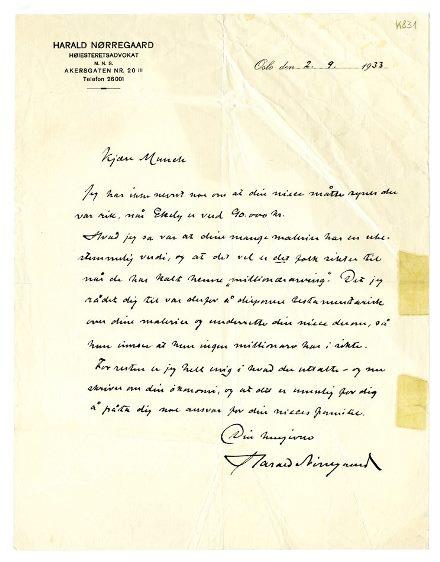 K831
HARALD NØRREGAARD
HØIESTERETSADVOKAT
M. N. S.
AKERSGATEN NR. 20 III
Telefon 26001
Oslo den 2. 9. 1933
Kjære Munch
Jeg har ikke nevnt noe om at din niece måtte synes du
var rik, når Ekely er verd 90.000 kr.
Hvad jeg sa var at dine mange malerier har en ube-
stemmelig verdi, og at det vel er det folk sikter til
når de har kalt henne „millionærarving". Det jeg
rådet dig til var derfor å disponere testamentarisk
over dine malerier og underrette din niece derom, så
hun innser at hun ingen millionarv har i sikte.
For resten er jeg helt enig i hvad du uttalte – og nu
skriver om din økonomi, og at det er umulig for dig
å påta dig noe ansvar for din nieces familie.
Din hengivne
Harald Nørregaard